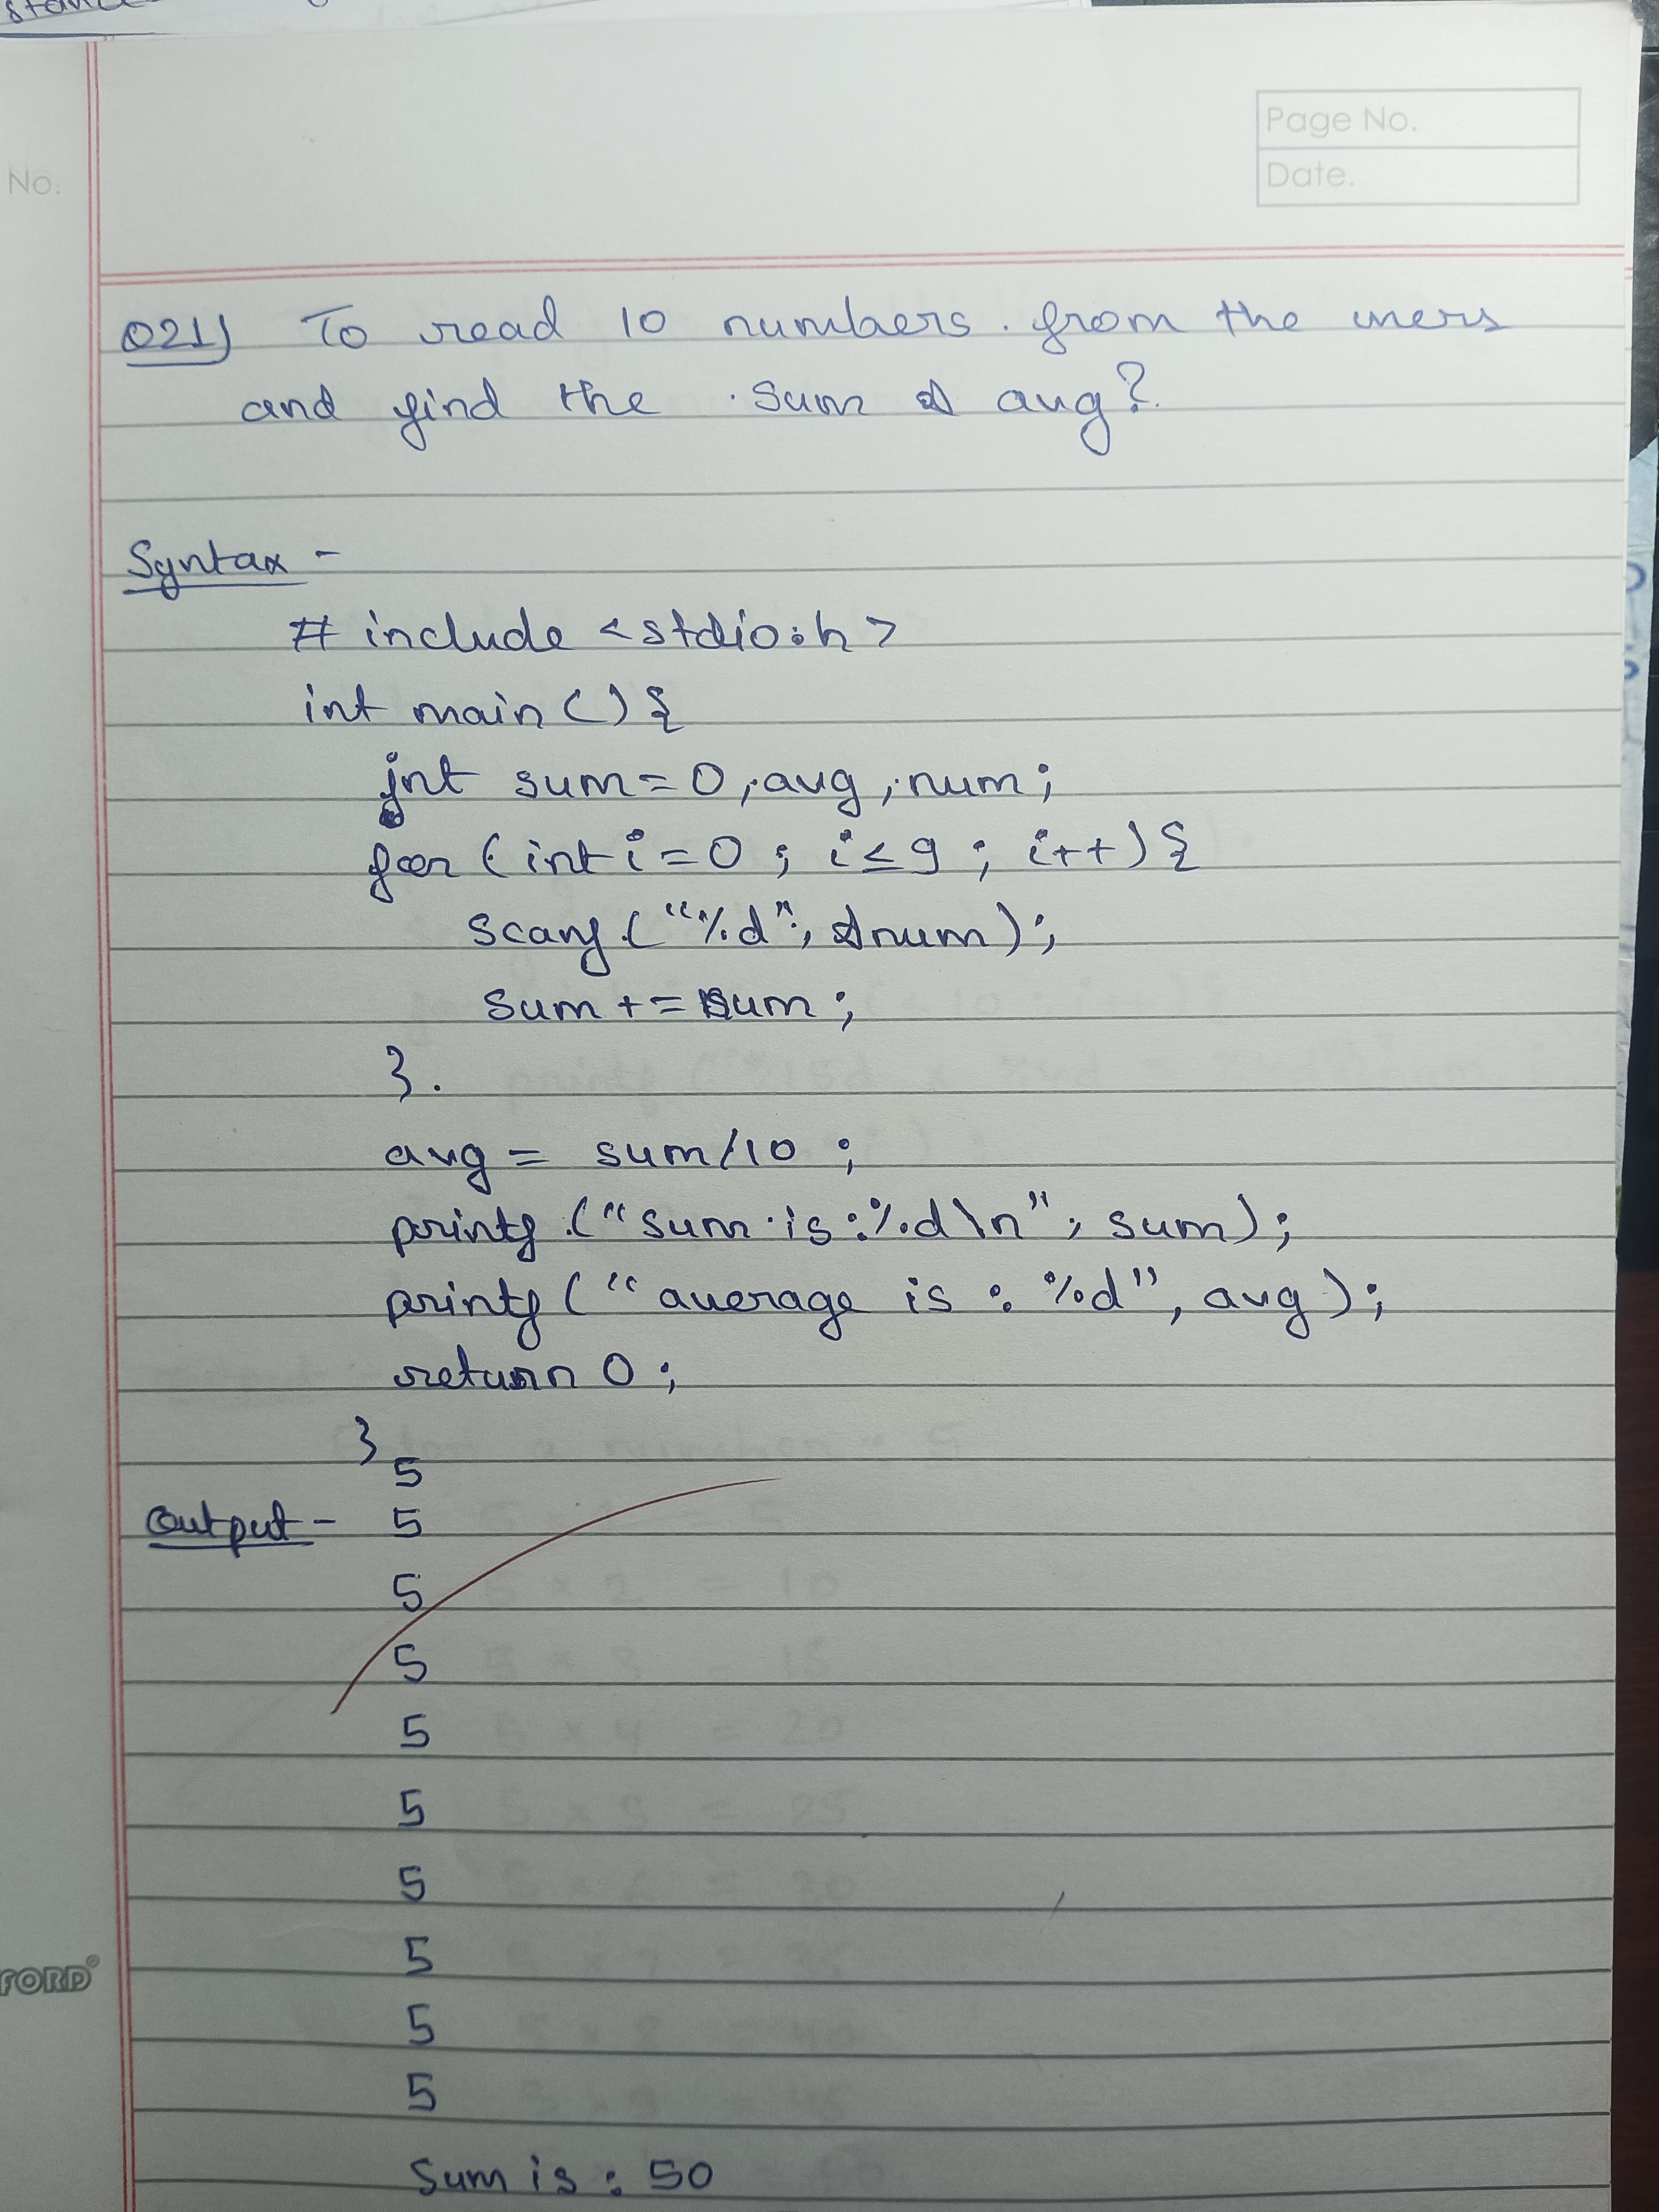 Page No.
Date.
No.
Q21) To read 10 numbers from the users
and find the sum & avg?
Syntax -
# include <stdio.h>
int main () {
int sum = 0, avg, num;
for (int i = 0; i ≤ 9; i++) {
scanf ("%d", &num);
sum += num;
}
avg = sum/10;
printf ("sum is : %d\n", sum);
printf ("average is : %d", avg);
return 0;
}
5
Output - 5
5
5
5
5
5
5
5
5
Sum is : 50